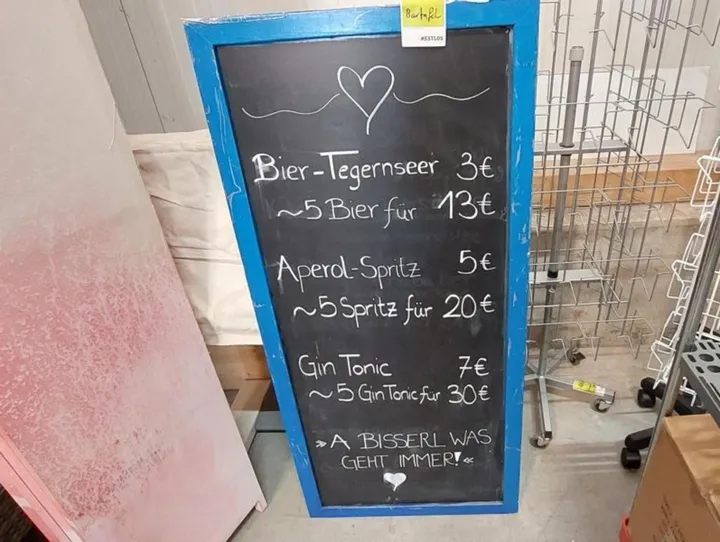 Bartafel
#ESTLOS
Bier-Tegernseer 3€
~5 Bier für 13€
Aperol-Spritz 5€
~5 Spritz für 20€
Gin Tonic 7€
~5 Gin Tonic für 30€
»A BISSERL WAS
GEHT IMMER!«